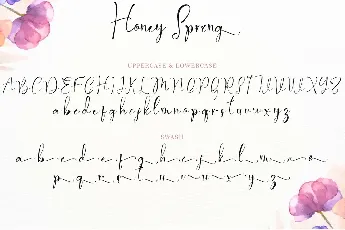 Honey Spreng
UPPERCASE & LOWERCASE
ABCDEFGHIJKLMNOPQRSTUVWXYZ
abcdefghijklmnopqrstuvwxyz
SWASH
a b c d e f g h i j k l m n o
p q r s t u v w x y z